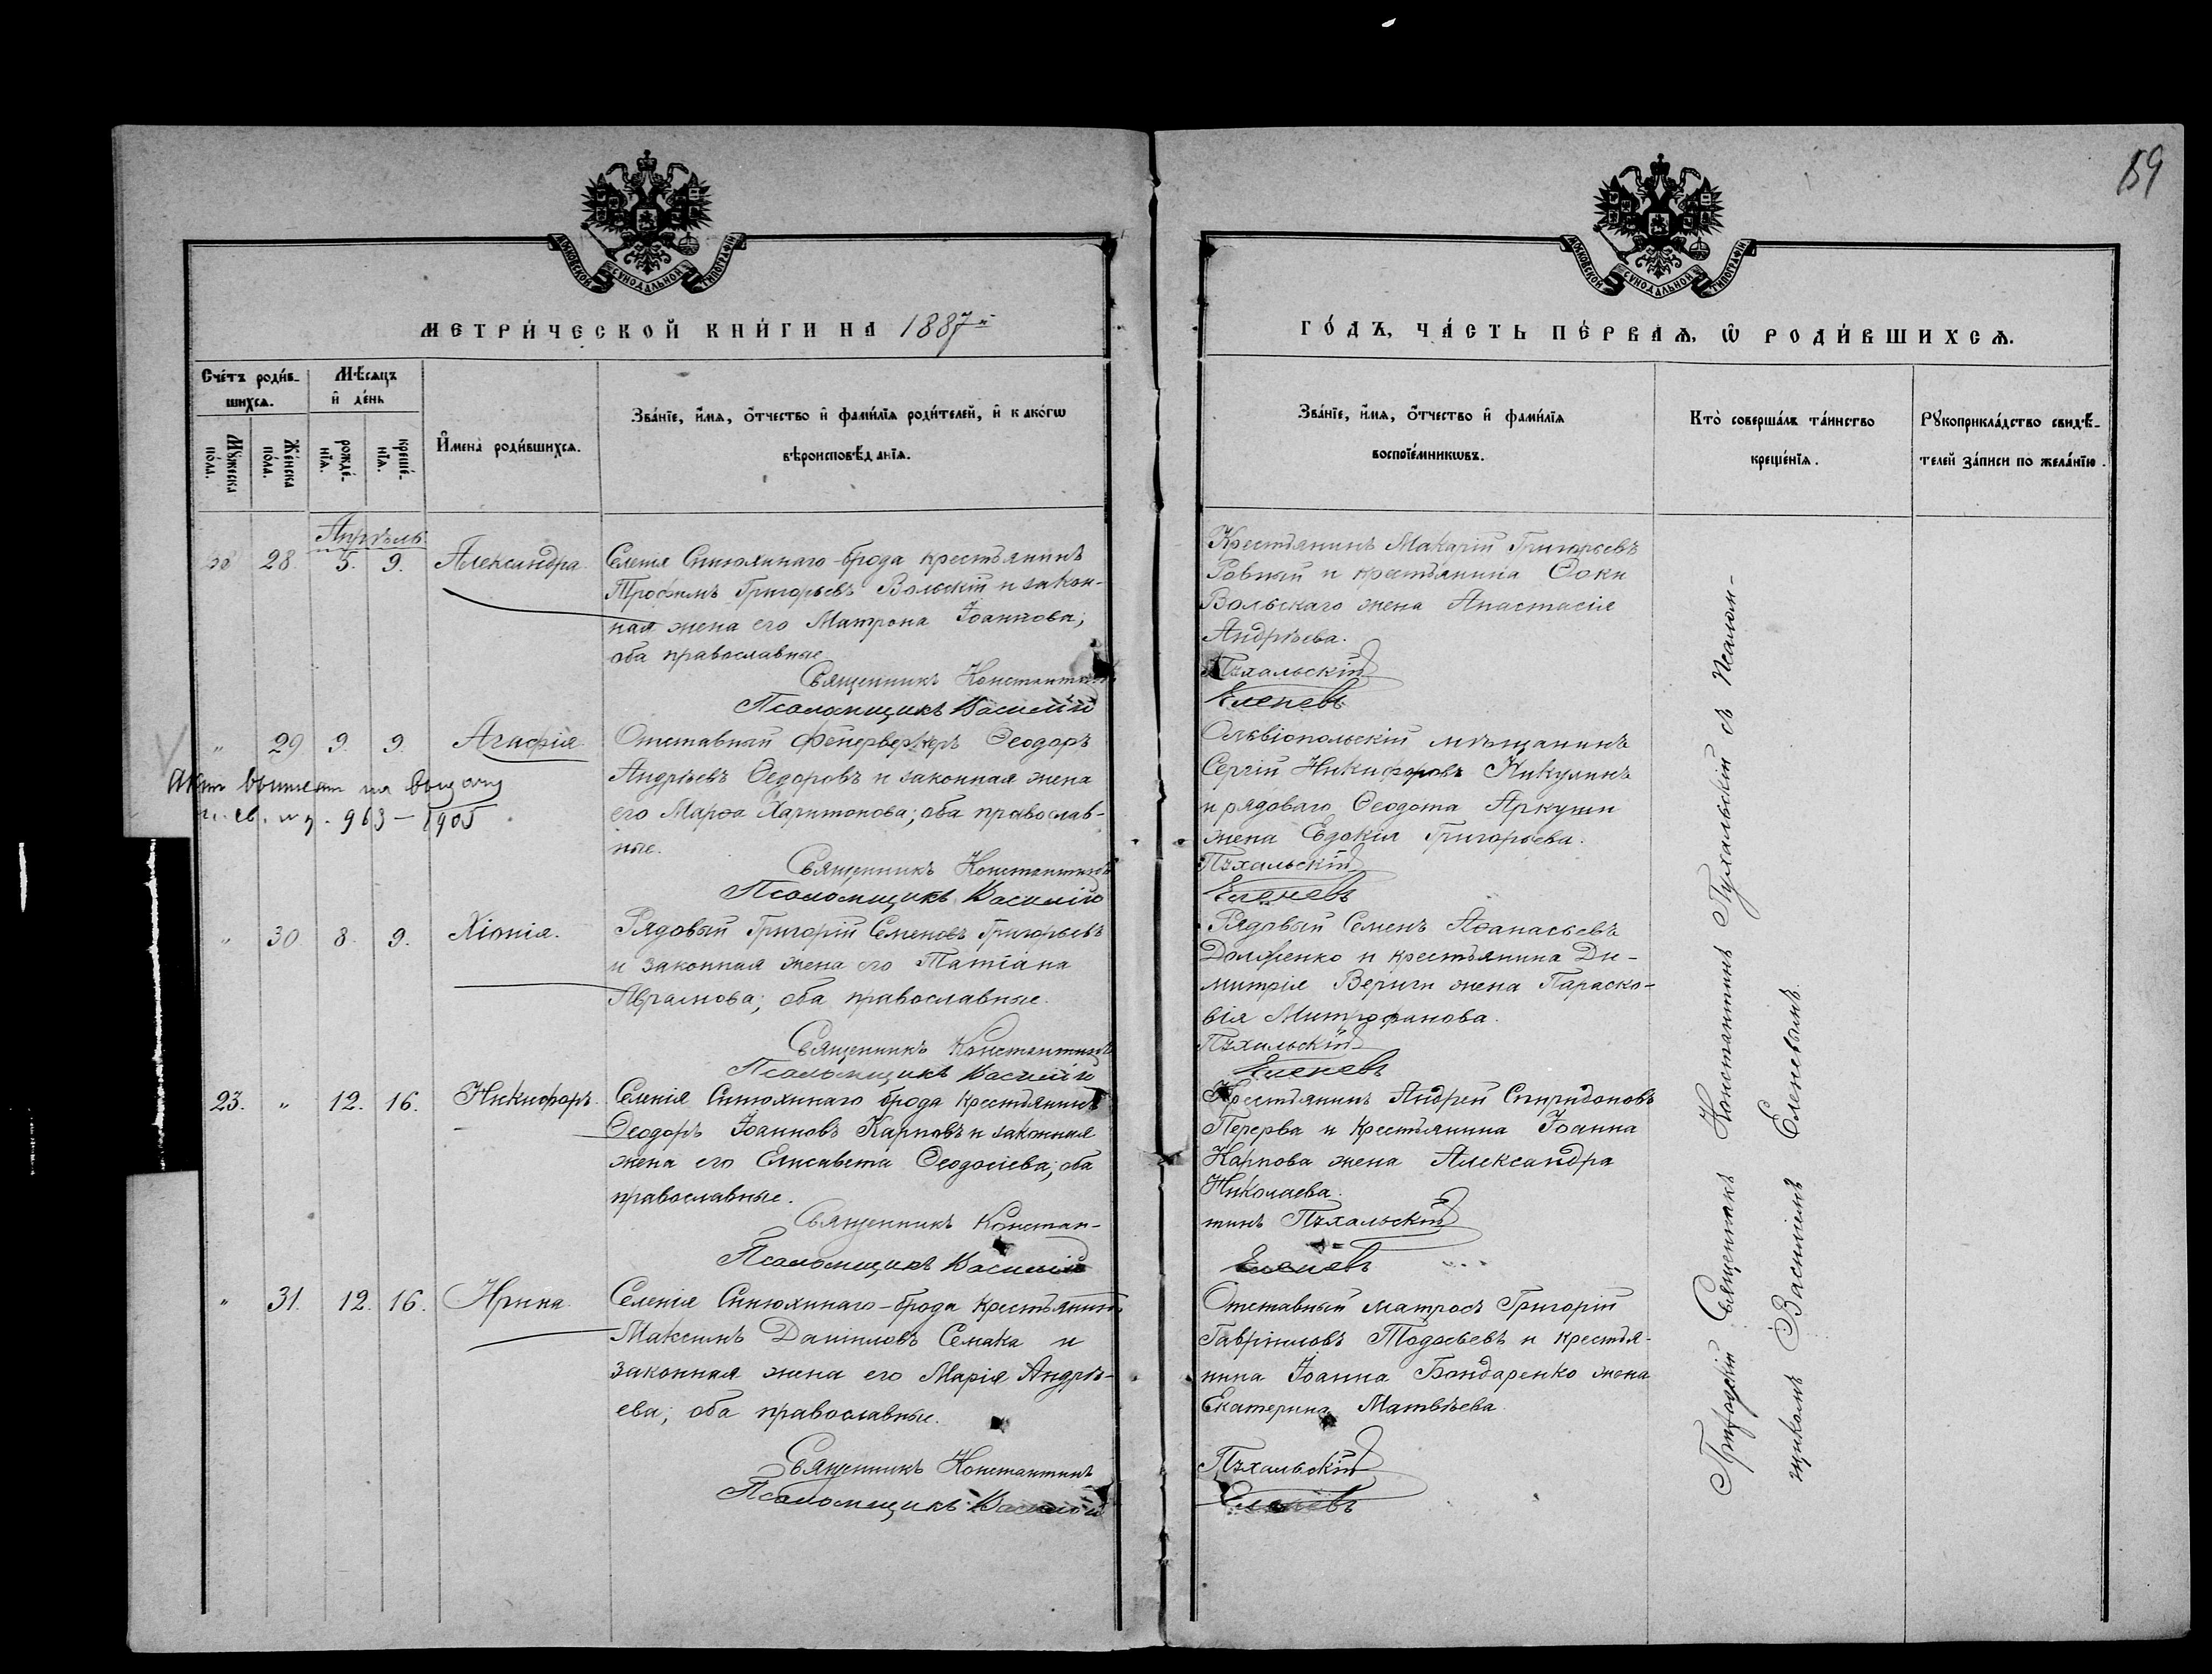 159
МОСКОВСКОЙ СѴНОДАЛЬНОЙ ТИПОГРАФІИ
МОСКОВСКОЙ СѴНОДАЛЬНОЙ ТИПОГРАФІИ
МЕТРИ́ЧЕСКОЙ КНИ́ГИ НА 1887й
ГО́ДЪ, ЧА́СТЬ ПЕ́РВАѦ, Ѽ РОДИ́ВШИХСѦ.
Сче́тъ роди́в-
шихсѧ.
Мѣ́сѧцъ
и҆ де́нь
Мꙋ́жеска
по́ла.
Же́нска
по́ла.
рожде́-
нїѧ.
креще́-
нїѧ.
И҆мена̀ роди́вшихсѧ.
Зва́нїе, и҆́мѧ, ѻ҆́тчество и҆ фами́лїѧ роди́телей, и҆ како́гѡ
вѣроисповѣ́данїѧ.
Зва́нїе, и҆́мѧ, ѻ҆́тчество и҆ фами́лїѧ
воспрїе́мникѡвъ.
Кто̀ соверша́лъ та́инство
креще́нїѧ.
Рꙋкоприкла́дство свидѣ́-
телей за́писи по жела́нїю.
Апрѣль
28. 5. 9. Александра.
Селенія Синюхинаго-брода крестьянинъ
Трофимъ Григорьевъ Вольскій и закон-
ная жена его Матрона Іоаннова;
оба православные.
Священникъ Константинъ
Псаломщикъ Василій
Крестьянинъ Макарій Григорьевъ
Ровный и крестьянина Ѳоки
Вольскаго жена Анастасія
Андрѣева.
Пухальскій
Еленевъ
" 29 9. 9. Агафія
Отставный фейерверкеръ Ѳеодоръ
Андрѣевъ Ѳедоровъ и законная жена
его Марѳа Харитонова; оба православ-
ные.
Священникъ Константинъ
Псаломщикъ Василій
963 — 1905
Ольвіопольскій мѣщанинъ
Сергій Никифоровъ Никулинъ
и рядоваго Ѳеодота Аркуши
жена Евдокія Григорьева.
Пухальскій
Еленевъ
" 30 8. 9. Хіонія.
Рядовый Григорій Семеновъ Григорьевъ
и законная жена его Татіана
Аврамова; оба православные.
Священникъ Константинъ
Псаломщикъ Василій
Рядовый Семенъ Аѳанасьевъ
Долженко и крестьянина Ди-
митрія Вериги жена Параске-
вія Митрофанова.
Пухальскій
Еленевъ
23. " 12. 16. Никифоръ.
Селенія Синюхинаго брода крестьянинъ
Ѳеодоръ Іоанновъ Карповъ и законная
жена его Елисавета Ѳеодосіева; оба
православные.
Священникъ Констан-
Псаломщикъ Василій
Крестьянинъ Андрей Спиридоновъ
Перерва и крестьянина Іоанна
Карпова жена Александра
Николаева.
тинъ Пухальскій
Еленевъ
" 31. 12. 16. Ирина.
Селенія Синюхинаго-брода крестьянинъ
Максимъ Даніиловъ Семака и
законная жена его Марія Андрѣ-
ева; оба православные.
Священникъ Константинъ
Псаломщикъ Василій
Отставный матросъ Григорій
Гавріиловъ Тодосьевъ и крестья-
нина Іоанна Бондаренко жена
Екатерина Матвѣева.
Пухальскій
Еленевъ
Священникъ Константинъ Пухальскій съ Псалом-
щикомъ Василіемъ Еленевымъ.